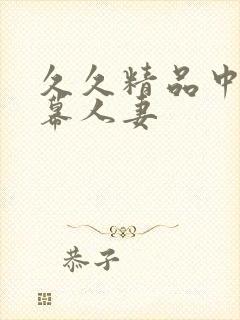 久久精品中
幕人妻
恭子